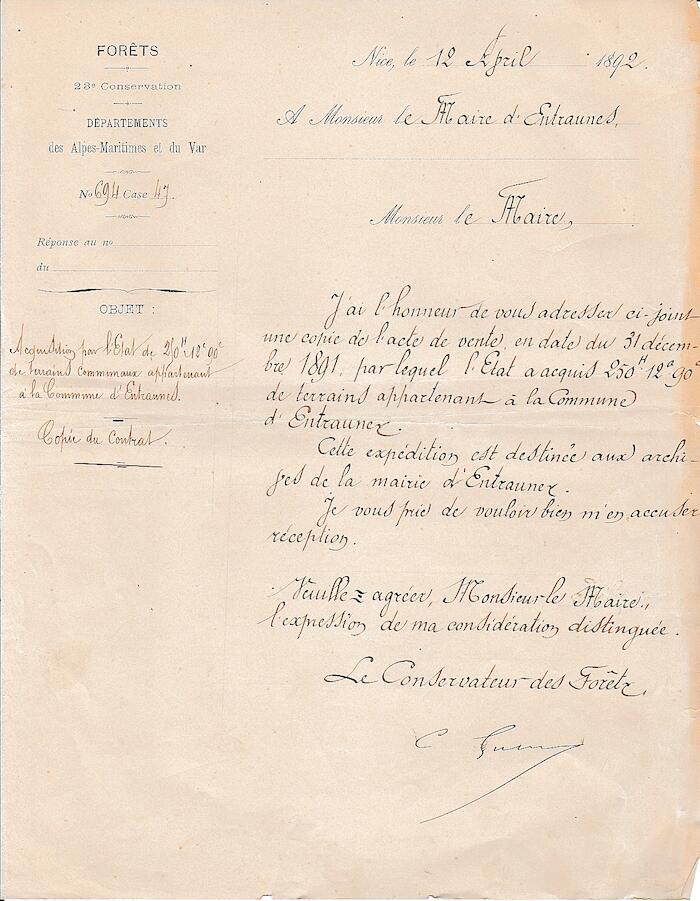 FORÊTS
23e Conservation
DÉPARTEMENTS
des Alpes-Maritimes et du Var
No 694 Case 47.
Réponse au no
du
OBJET :
Acquisition par l'Etat de 250H 12a 90c
de terrains communaux appartenant
à la Commune d'Entraunes.
Copie du Contrat.
Nice, le 12 April 1892.
A Monsieur le Maire d'Entraunes,
Monsieur le Maire,
J'ai l'honneur de vous adresser ci-joint
une copie de l'acte de vente, en date du 31 décem-
bre 1891, par lequel l'Etat a acquis 250H 12a 90c
de terrains appartenant à la Commune
d'Entraunes.
Cette expédition est destinée aux archi-
ves de la mairie d'Entraunes.
Je vous prie de vouloir bien m'en accuser
réception.
Veuillez agréer, Monsieur le Maire,
l'expression de ma considération distinguée.
Le Conservateur des Forêts,